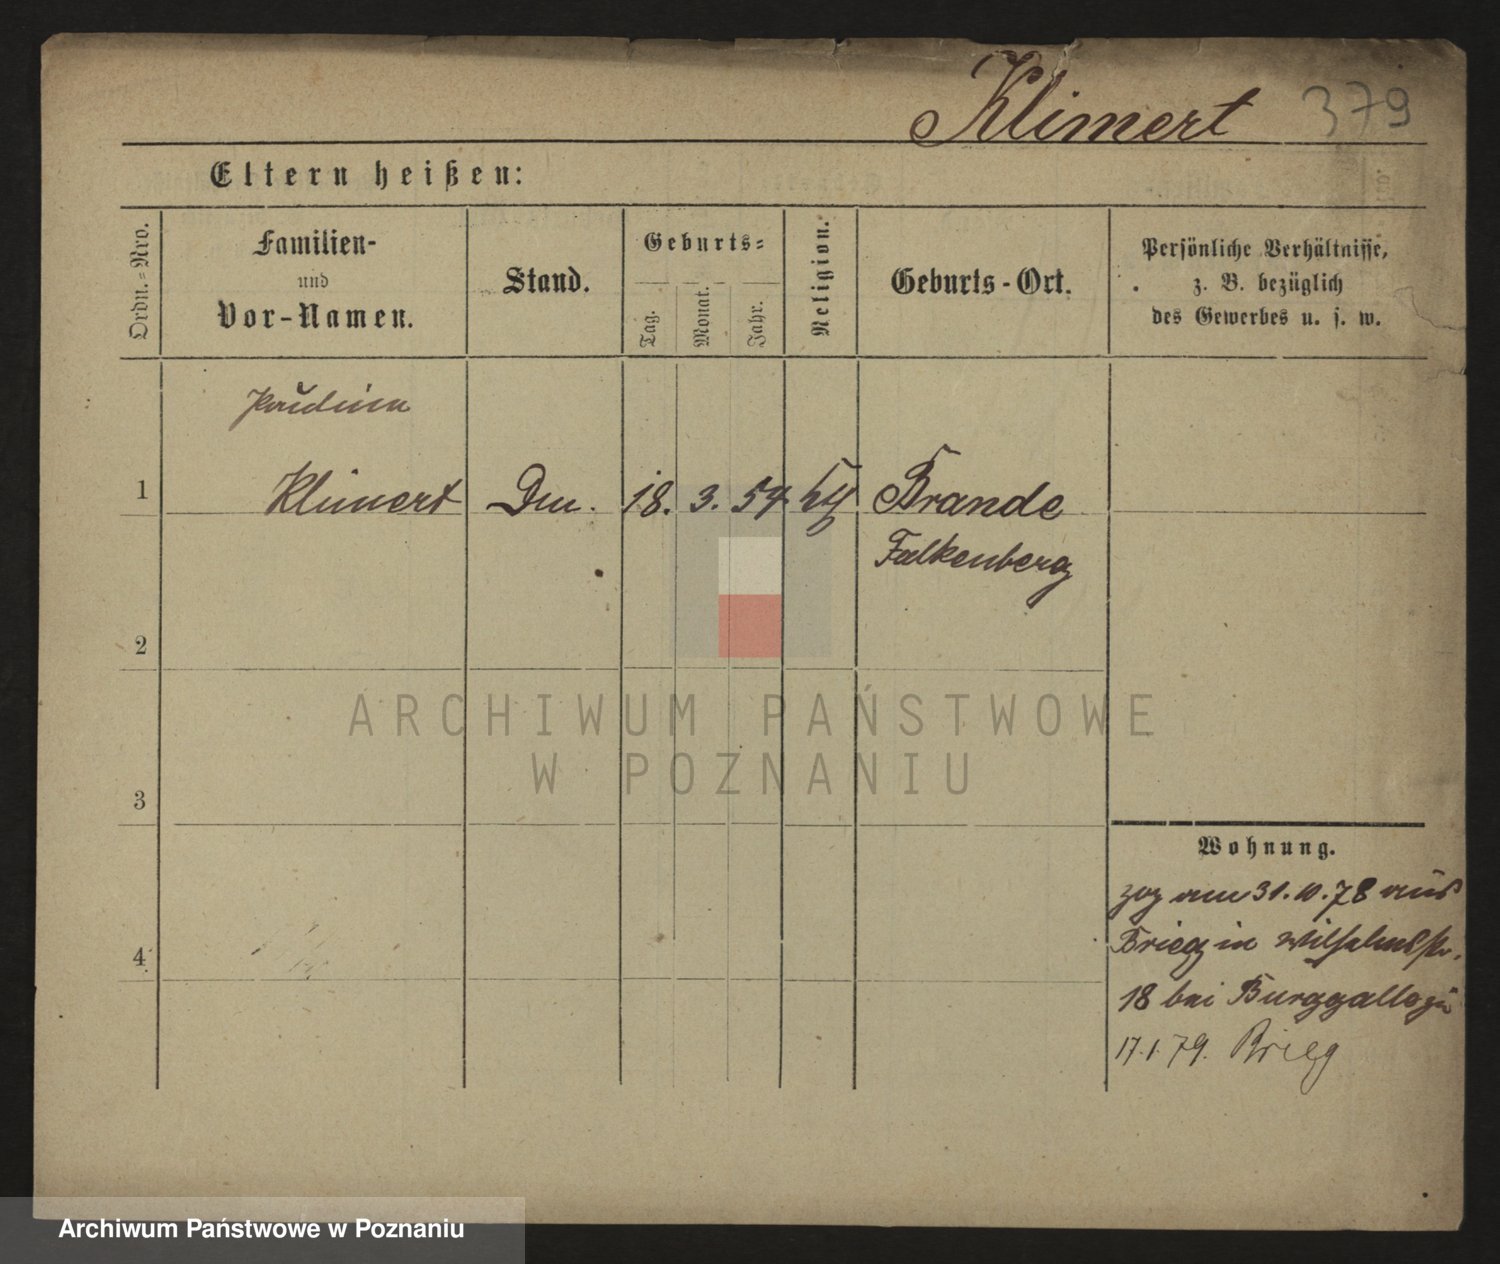 Klimert 379
Eltern heißen:
Ordn.=Nro.
Familien-
und
Vor-Namen.
Stand.
Geburts=
Tag.
Monat.
Jahr.
Religion.
Geburts-Ort.
Persönliche Verhältnisse,
z. B. bezüglich
des Gewerbes u. s. w.
Paulina
1 Klimert 18. 3. 54. Brande
Falkenberg
2
3
4
Wohnung.
zog am 31.10.78 aus
Brieg in Wilhelmsstr.
18 bei
17.1.79. Brieg
ARCHIWUM PAŃSTWOWE
W POZNANIU
Archiwum Państwowe w Poznaniu